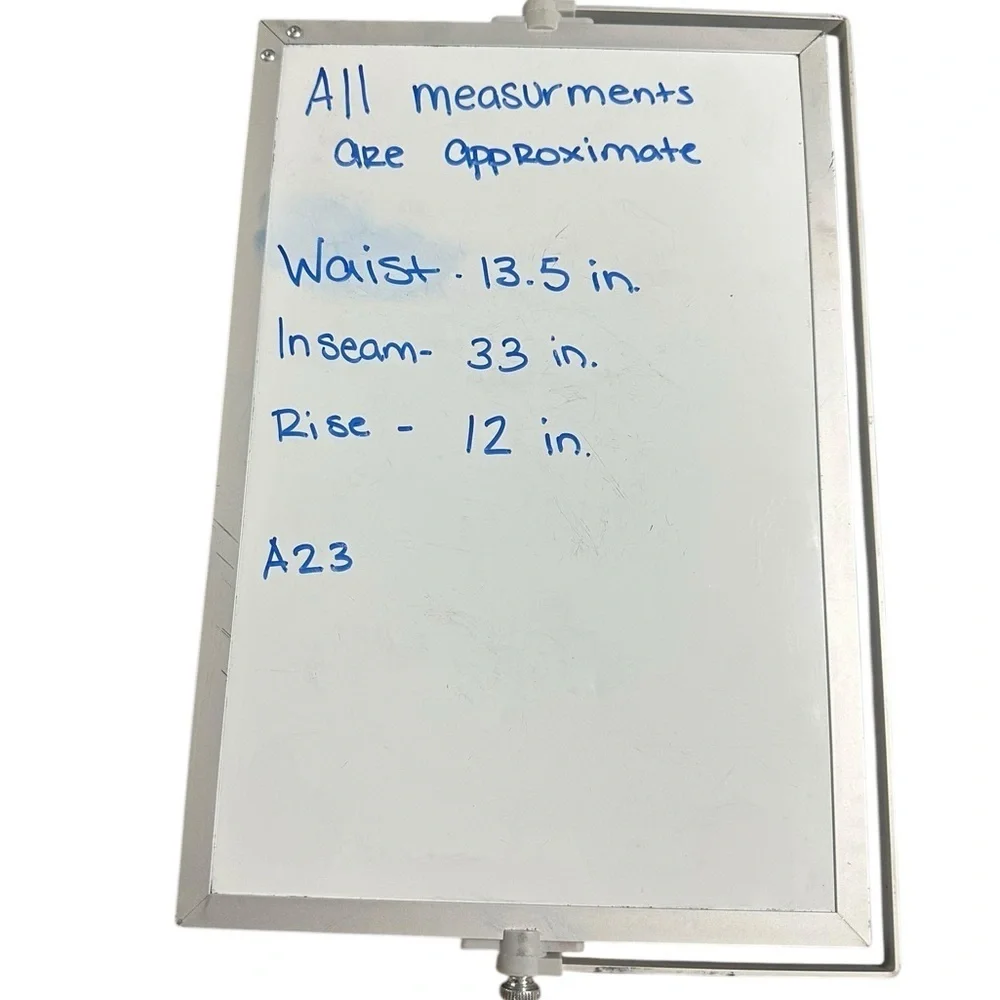 All measurments
are approximate
Waist - 13.5 in.
Inseam- 33 in.
Rise - 12 in.
A23